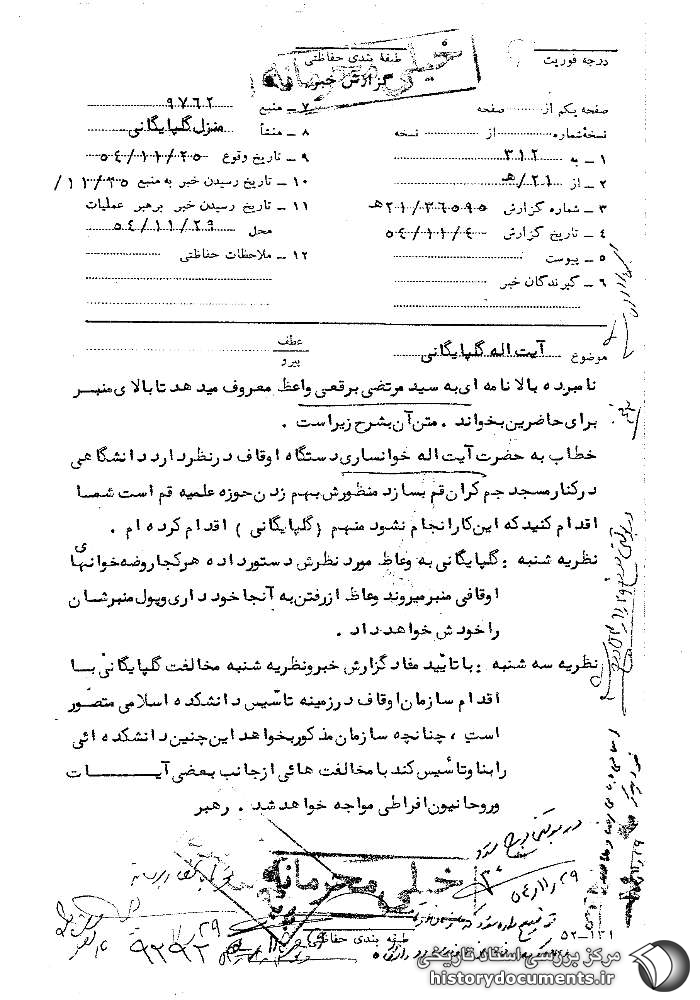 خیلی محرمانه
درجه فوریت
طبقه بندی حفاظتی
گزارش خبر
صفحه یکم از صفحه
نسخه شماره از نسخه
۱ ـ به ۳۱۲
۲ ـ از ۲۱/هـ
۳ ـ شماره گزارش ۲۱/۳۶۵۹۵هـ
۴ ـ تاریخ گزارش ۵۴/۱۱/۴
۵ ـ پیوست
۶ ـ گیرندگان خبر
۷ ـ منبع ۹۷۶۲
۸ ـ منشأ منزل گلپایگانی
۹ ـ تاریخ وقوع ۵۴/۱۱/۲۵
۱۰ ـ تاریخ رسیدن خبر به منبع
۱۱ ـ تاریخ رسیدن خبر برهبر عملیات
محل ۵۴/۱۱/۲۹
۱۲ ـ ملاحظات حفاظتی
موضوع آیت اله گلپایگانی
عطف
پیرو
نامبرده بالا نامه ای به سید مرتضی برقعی واعظ معروف میدهد تا بالای منبر
برای حاضرین بخواند . متن آن بشرح زیر است .
خطاب به حضرت آیت اله خوانساری دستگاه اوقاف در نظر دارد دانشگاهی
در کنار مسجد جم کران قم بسازد منظورش بهم زدن حوزه علمیه قم است شما
اقدام کنید که این کار انجام نشود منهم (گلپایگانی) اقدام کرده ام .
نظریه شنبه : گلپایگانی به وعاظ مورد نظرش دستور داده هر کجا روضه خوانیهای
اوقافی منبر میروند وعاظ از رفتن به آنجا خود داری و پول منبرشان
را خودش خواهد داد .
نظریه سه شنبه : با تأیید مفاد گزارش خبر و نظریه شنبه مخالفت گلپایگانی با
اقدام سازمان اوقاف در زمینه تاسیس دانشکده اسلامی متصور
است ، چنانچه سازمان مذکور بخواهد این چنین دانشکده ائی
را بنا و تأسیس کند با مخالفت هائی از جانب بعضی آیات
و روحانیون افراطی مواجه خواهد شد . رهبر
خیلی محرمانه
۵۴/۱۱/۲۹
طبقه بندی حفاظتی
۵۲-۱۳۱
مرکز بررسی اسناد تاریخی
historydocuments.ir